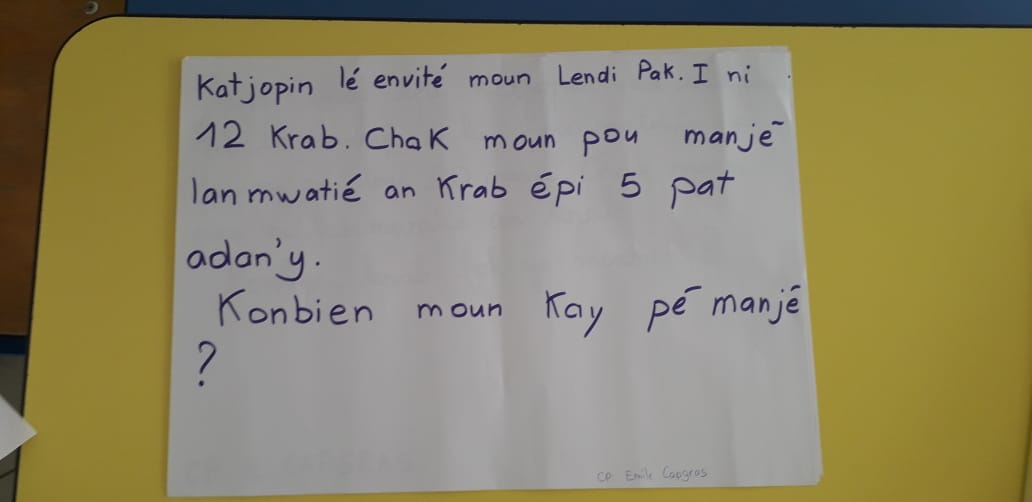 Katjopin lé envité moun Lendi Pak. I ni
12 Krab. Chak moun pou manjé
lan mwatié an Krab épi 5 pat
adan'y.
Konbien moun Kay pé manjé
?
CP Emile Capgros